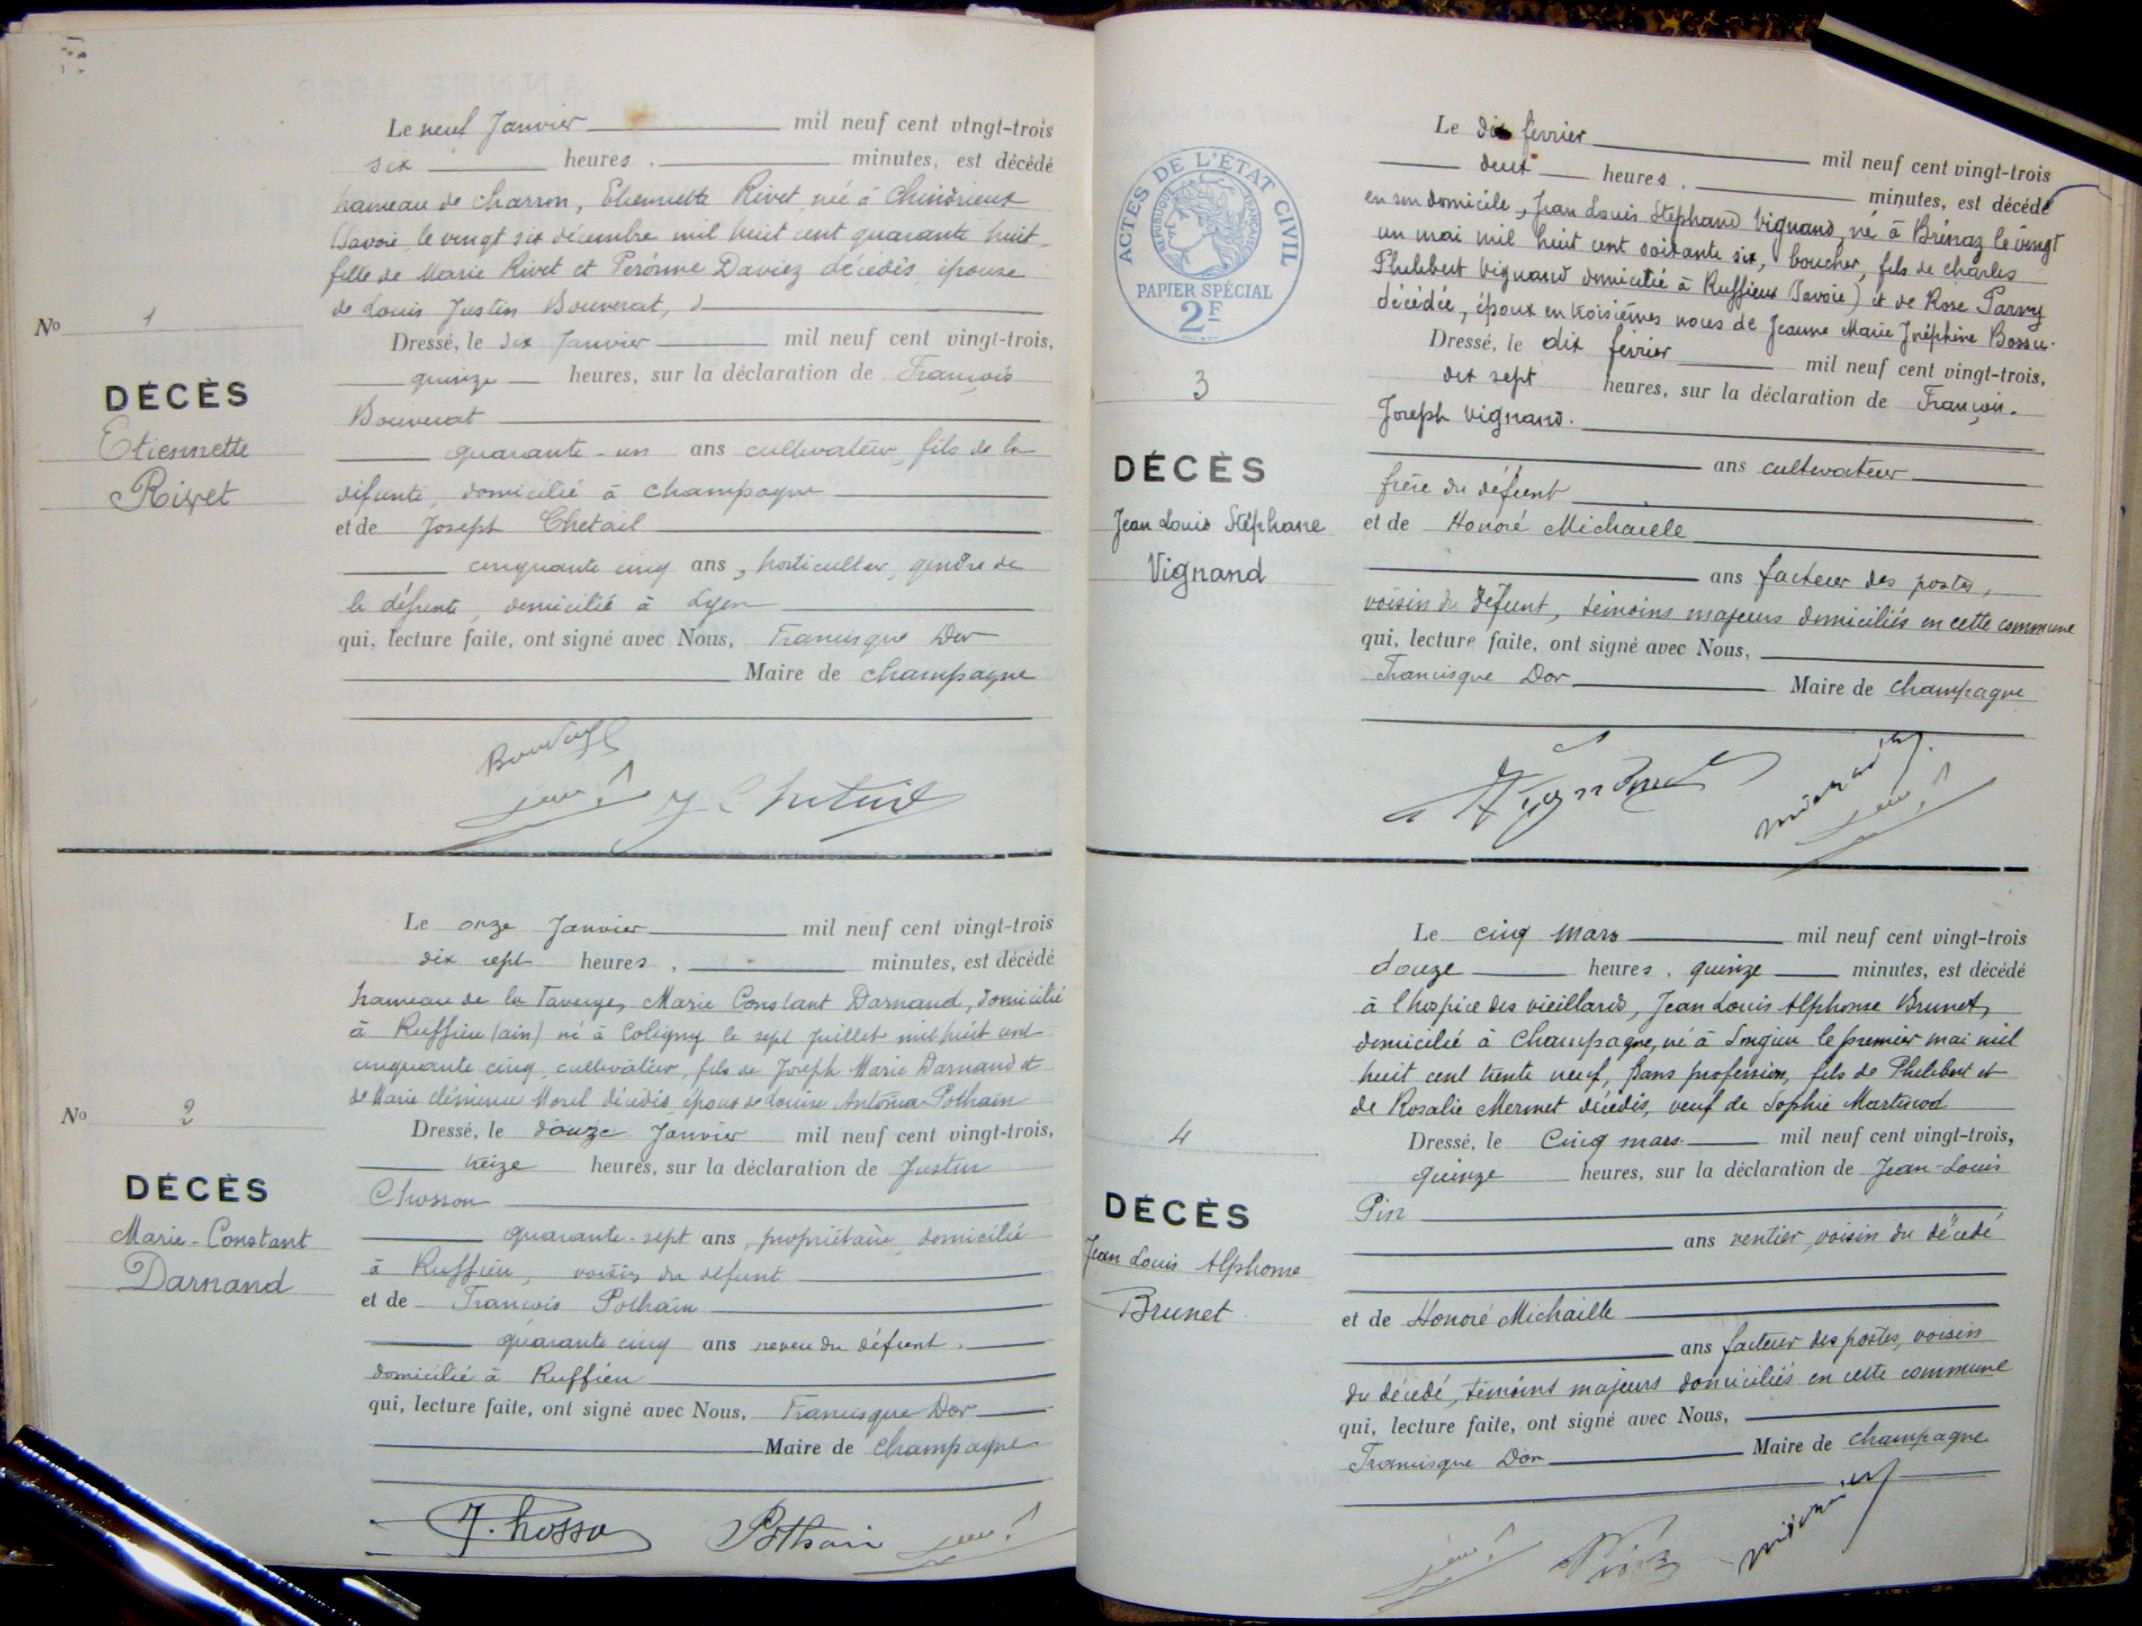 Le neuf Janvier mil neuf cent vingt-trois
six heures, minutes, est décédé
hameau de Charron, Etiennette Rivet, née à Chindrieux
(Savoie le vingt six décembre mil huit cent quarante huit
fille de Marie Rivet et Peronne Daviez décédés, épouse
de Louis Justin Bouverat,
Dressé, le dix Janvier mil neuf cent vingt-trois,
quinze heures, sur la déclaration de François
Bouverat
quarante-un ans cultivateur, fils de la
défunte, domicilié à Champagne
et de Joseph Chetail
cinquante cinq ans, horticulteur, gendre de
la défunte, domicilié à Lyon
qui, lecture faite, ont signé avec Nous, Francisque Dor
Maire de Champagne
No 1
DÉCÈS
Etiennette
Rivet
J. Chetail
Le onze Janvier mil neuf cent vingt-trois
dix sept heures, minutes, est décédé
hameau de la Marie Constant Darnand, domicilié
à Ruffieu (ain) né à Coligny le sept Juillet mil huit cent
cinquante cinq, cultivateur, fils de Joseph Marie Darnand et
de Marie Clémence Morel décédés, époux de Louise Antonia Pothain
Dressé, le douze Janvier mil neuf cent vingt-trois,
treize heures, sur la déclaration de Justin
Chosson
quarante-sept ans, propriétaire, domicilié
à Ruffieu, voisin du défunt
et de François Pothain
quarante cinq ans neveu du défunt,
domicilié à Ruffieu
qui, lecture faite, ont signé avec Nous, Francisque Dor
Maire de Champagne
No 2
DÉCÈS
Marie-Constant
Darnand
J. Chosson Pothain
ACTES DE L'ÉTAT CIVIL
RÉPUBLIQUE FRANÇAISE
PAPIER SPÉCIAL
2F
Le dix février mil neuf cent vingt-trois
deux heures, minutes, est décédé
en son domicile, Jean Louis Stéphand Vignand, né à Brénaz le vingt
un mai mil huit cent soixante six, boucher, fils de Charles
Philibert Vignand domicilié à Ruffieux Savoie) et de Rose Parny
décédée, époux en troisièmes noces de Jeanne Marie Joséphine Bossu.
Dressé, le dix février mil neuf cent vingt-trois,
dix sept heures, sur la déclaration de François.
Joseph Vignand.
ans cultivateur
frère du défunt
et de Honoré Michaille
ans facteur des postes,
voisin du défunt, témoins majeurs domiciliés en cette commune
qui, lecture faite, ont signé avec Nous,
Francisque Dor Maire de Champagne
3
DÉCÈS
Jean Louis Stéphane
Vignand
Vignand
Le cinq mars mil neuf cent vingt-trois
douze heures, quinze minutes, est décédé
à l'hospice des vieillards, Jean Louis Alphonse Brunet,
domicilié à Champagne, né à Songieu le premier mai mil
huit cent trente neuf, sans profession, fils de Philibert et
de Rosalie Mermet décédés, veuf de Sophie Martinod
Dressé, le Cinq mars mil neuf cent vingt-trois,
quinze heures, sur la déclaration de Jean-Louis
Pin
ans rentier, voisin du décédé
et de Honoré Michaille
ans facteur des postes, voisin
du décédé, témoins majeurs domiciliés en cette commune
qui, lecture faite, ont signé avec Nous,
Francisque Dor Maire de Champagne
4
DÉCÈS
Jean Louis Alphonse
Brunet
Pin